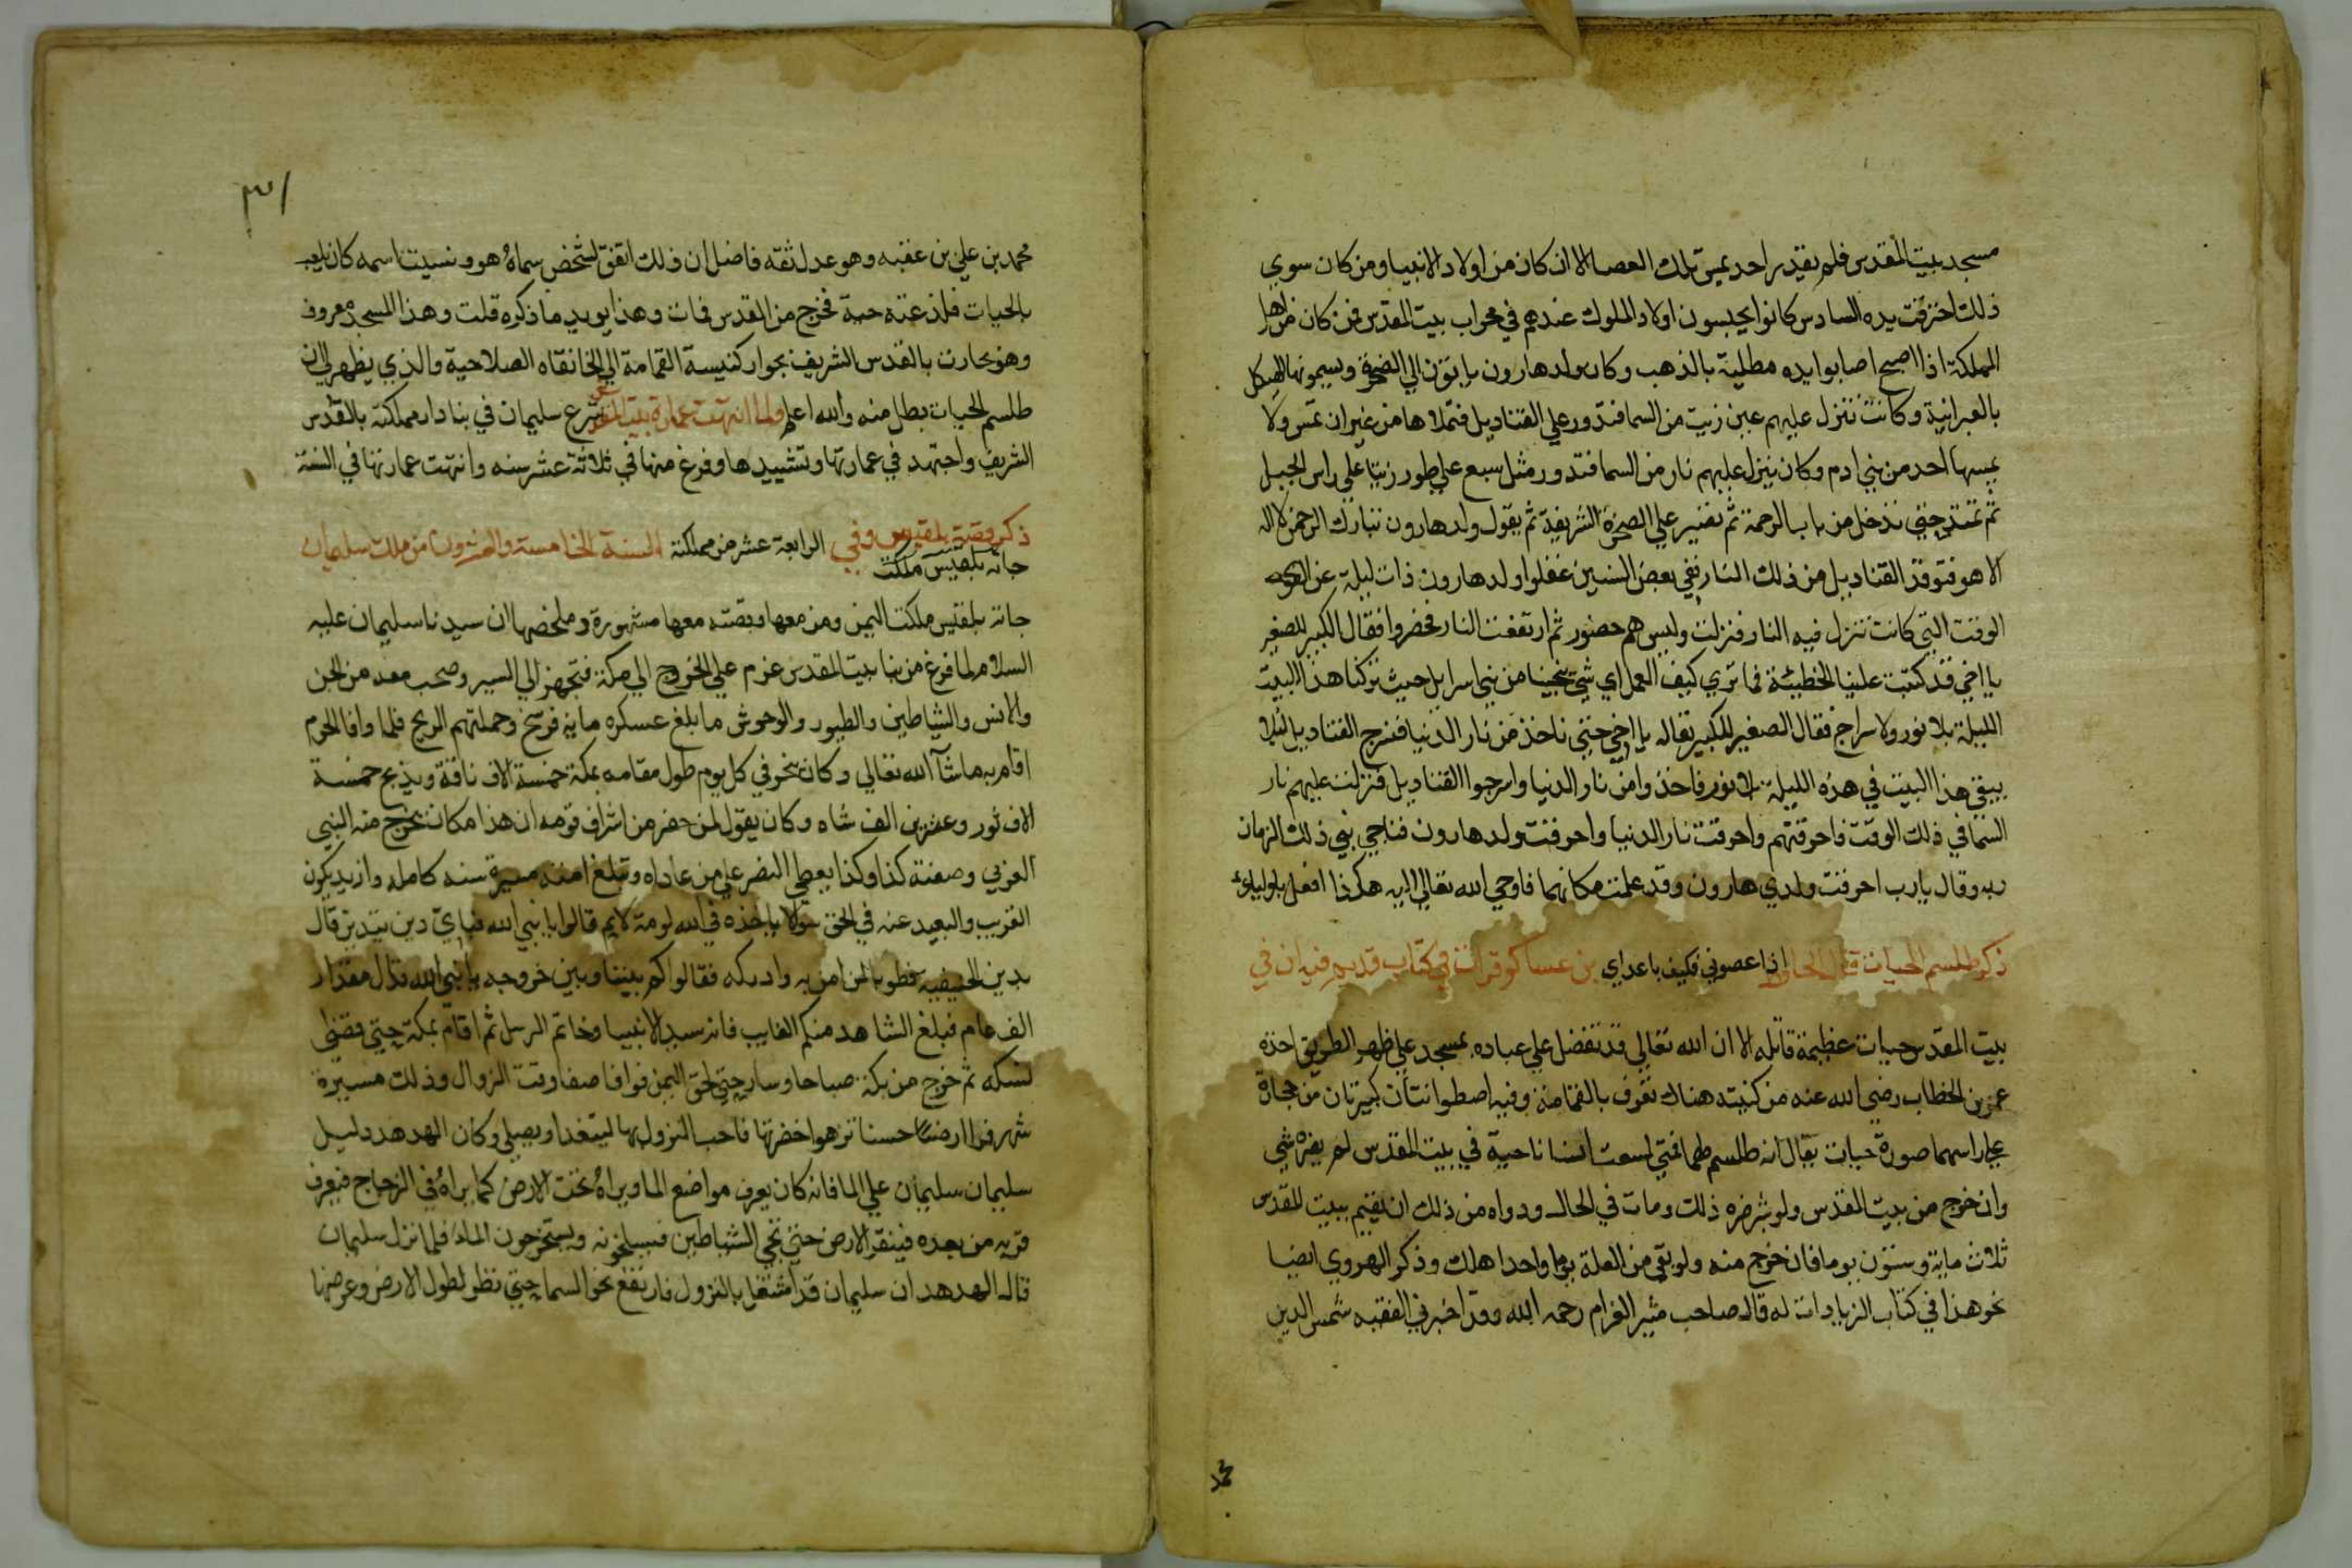 مسجد بيت المقدس فلم يقدر احد يمس تلك العصا الا ان كان من اولاد الانبيا ومن كان سوي
ذلك احترقت يده السادس كانوا يحبسون اولاد الملوك عندهم في محراب بيت المقدس فمن كان من اهل
المملكة اذا اصبح اصابوا يده مطلية بالذهب وكان ولد هارون ياتون الي الصخرة ويسمونها الهيكل
بالعبرانية وكانت تنزل عليهم عين زيت من السما فتدور علي القناديل فتملاها من غير ان تمس ولا
يمسها احد من بني ادم وكان ينزل عليهم نار من السما فتدور مثل سبع علي طور زيتا علي راس الجبل
ثم تمتد حتي تدخل من باب الرحمة ثم تصير علي الصخرة الشريفة ثم يقول ولد هارون تبارك الرحمن لا اله
الا هو فتوقد القناديل من ذلك النار ففي بعض السنين غفلوا ولد هارون ذات ليلة عن
الوقت التي كانت تنزل فيه النار فنزلت وليس هم حضور ثم ارتفعت النار فحضروا فقال الكبير للصغير
يا اخي قد كتبت علينا الخطيئة فما تري كيف العمل اي شي ينجينا من بني اسرايل حيث تركنا هذا البيت
الليلة بلا نور ولا سراج فقال الصغير للكبير تعاله يا اخي حتي ناخذ من نار الدنيا فنسرج القناديل لئلا
يبقي هذا البيت في هذه الليلة بلا نور فاخذوا من نار الدنيا واسرجوا القناديل فنزلت عليهم نار
السما في ذلك الوقت فاحرقتهم واحرقت نار الدنيا واحرقت ولد هارون فناجي نبي ذلك الزمان
ربه وقال يارب احرقت ولدي هارون وقد علمت مكانهما فاوحي الله تعالي اليه هكذا افعل باوليائي
اذا عصوني فكيف باعداي
ذكر طلسم الحيات قال الحافظ بن عساكر قرات في كتاب قديم فيه ان في
بيت المقدس حيات عظيمة قاتله الا ان الله تعالي قد تفضل علي عباده بمسجد علي ظهر الطريق اخذه
عمر بن الخطاب رضي الله عنه من كنيسة هناك تعرف بالقمامة وفيه اصطوانتان كبيرتان من حجارة
علي راسهما صورة حيات يقال انه طلسم لهما فمتي لسعت انسانا حية في بيت المقدس لم يضره شي
وان خرج من بيت المقدس ولو شبر ضره ذلك ومات في الحال ودواه من ذلك ان يقيم ببيت المقدس
ثلاث ماية وستون يوما فان خرج منه ولو بقي من العلة يوما واحدا هلك وذكر الهروي ايضا
نحو هذا في كتاب الزيارات له قال صاحب مثير الغرام رحمه الله وقد اخبرني الفقيه شمس الدين
محمد
٣١
محمد بن علي بن عقبه وهو عدل ثقه فاضل ان ذلك اتفق لشخص سماه هو ونسيت اسمه كان يلعب
بالحيات فلذعته حية فخرج من القدس فمات وهذا يويد ما ذكره قلت وهذا المسجد معروف
وهو بحارت بالقدس الشريف بجوار كنيسة القمامة الي الخانقاه الصلاحية والذي يظهر لي ان
طلسم الحيات بطل منه والله اعلم ولما انتهت عمارة بيت المقدس شرع سليمان في بنا دار مملكته بالقدس
الشريف واجتهد في عمارتها وتشييدها وفرغ منها في ثلاثة عشر سنه وانتهت عمارتها في السنة
ذكر قصة بلقيس وفي الرابعة عشر من مملكته السنة الخامسة والعشرون من ملك سليمان
جاته بلقيس ملكت
جاته بلقيس ملكت اليمن ومن معها وقصته معها مشهورة وملخصها ان سيدنا سليمان عليه
السلام لما فرغ من بنا بيت المقدس عزم علي الخروج الي مكة فتجهز الي السير وصحب معه من الجن
والانس والشياطين والطيور والوحوش ما بلغ عسكره ماية فرسخ وحملتهم الريح فلما وافا الحرم
اقام به ما شآ الله تعالي وكان ينحر في كل يوم طول مقامه بمكة خمسة الاف ناقة ويذبح خمسة
الاف ثور وعشرين الف شاه وكان يقول لمن حضر من اشراف قومه ان هذا مكان يخرج منه النبي
العربي وصفته كذا وكذا يعطي النصر علي من عاداه وتبلغ مسيرة سنه كامله وازيد يكون
القريب والبعيد عنه في الحق سوا لا ياخذه في الله لومة لايم قالوا يا نبي الله فباي دين يتدين قال
بدين الحنيفيه فطوبا لمن امن به وادركه فقالوا كم بيننا وبين خروجه يا نبي الله قال مقدار
الف عام فيبلغ الشاهد منكم الغايب فانه سيد الانبيا وخاتم الرسل ثم اقام بمكة حتي قضي
نسكه ثم خرج من مكة صباحا وسار حتي لحق اليمن فوافا صنعا وقت الزوال وذلك مسيرة
شهر فراا ارضا حسنا تزهوا خضرتها فاحب النزول بها ليتغدا ويصلي وكان الهدهد دليل
سليمان سليمان علي الما فانه كان يعرف مواضع الما ويراه تحت الارض كما يراه في الزجاج فيعرف
قربه من بعده فينقر الارض حتي تجي الشياطين فيسلخونه ويستخرجون الماء فلما نزل سليمان
قاله الهدهد ان سليمان قد اشتغل بالنزول فارتفع نحو السما حتي نظر لطول الارض وعرضها